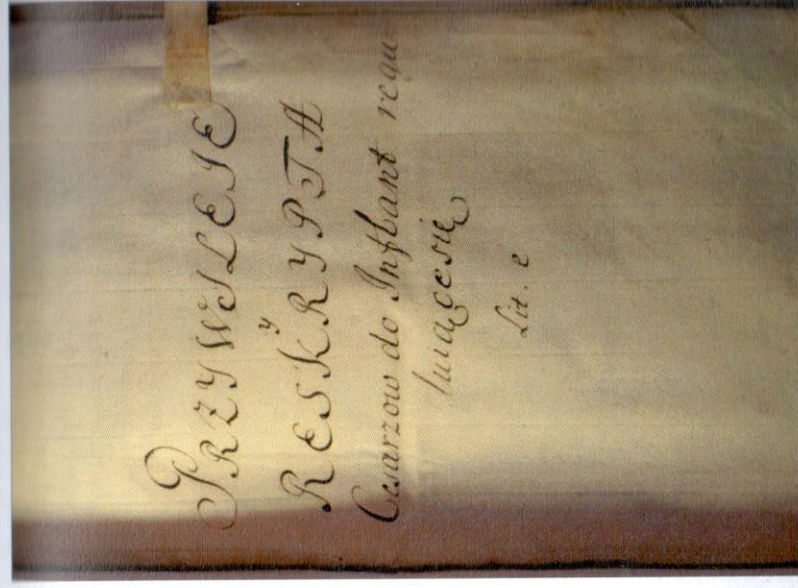 PRZYWILEIE
y
RESKRYPTA
Cesarzow do Inflant regu
luiącesię
Lit. e